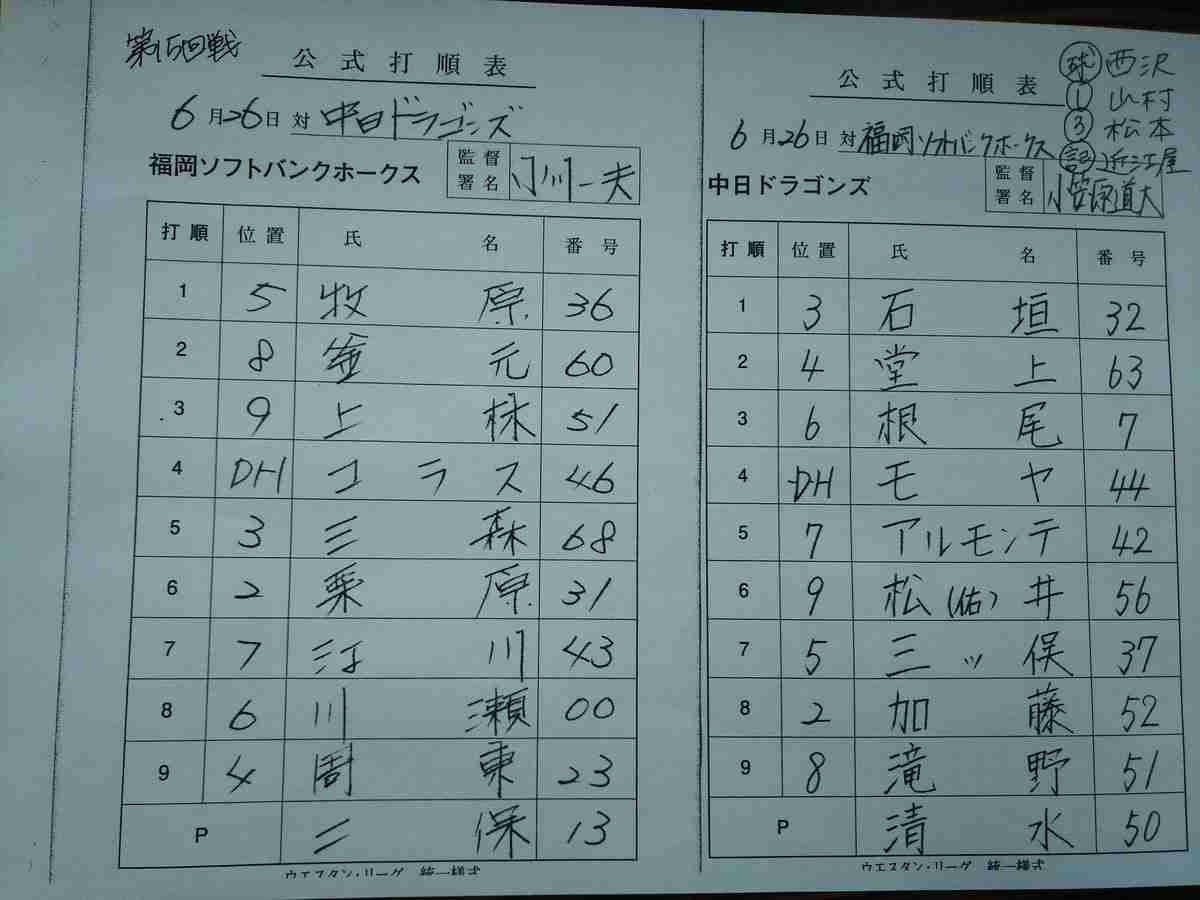 第15回戦
公式打順表
6月26日 対 中日ドラゴンズ
福岡ソフトバンクホークス 監督署名 小川一夫
打順 位置 氏名 番号
1 5 牧原 36
2 8 釜元 60
3 9 上林 51
4 DH コラス 46
5 3 三森 68
6 2 栗原 31
7 7 江川 43
8 6 川瀬 00
9 4 周東 23
P 二保 13
ウエスタン・リーグ 統一様式
公式打順表
球 西沢
1 山村
3 松本
記 近江屋
6月26日 対 福岡ソフトバンクホークス
中日ドラゴンズ 監督署名 小笠原道大
打順 位置 氏名 番号
1 3 石垣 32
2 4 堂上 63
3 6 根尾 7
4 DH モヤ 44
5 7 アルモンテ 42
6 9 松(佑)井 56
7 5 三ッ俣 37
8 2 加藤 52
9 8 滝野 51
P 清水 50
ウエスタン・リーグ 統一様式